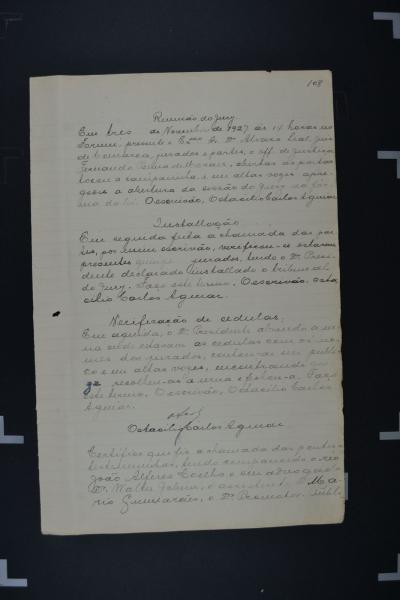 108
Reunião do Jury
Em tres de Novembro de 1927 ás 14 horas no
Forum, presente o Exmo Sr. Dr. Alvaro Leal, Juiz
de Comarca, jurados e partes, o off. de Justiça
Fernando de Moraes, abertas as portas
tocou a campainha e em altas vozes apre-
goou a abertura da sessão do Jury na fór-
ma da lei. O escrivão, Octacilio Carlos Aguiar.
Installação
Em seguida feita a chamada das par-
tes, por mim escrivão, verificou-se estarem
presentes quinze jurados, tendo o Dr. Presi-
dente declarado installado o tribunal
do Jury. Faço este termo. O escrivão. Octa-
cilio Carlos Aguiar.
Verificação de cedulas.
Em seguida, o Dr. Presidente abrindo a ur-
na onde estavam as cedulas com os no-
mes dos jurados, contou-as em publi-
co e em altas vozes, encontrando quin-
ze recolheu-as á urna e fechou-a. Faço
este termo. O escrivão, Octacilio Carlos
Aguiar.
Octacilio Carlos Aguiar
Certifico que fiz a chamada das partes e
testemunhas, tendo comparecido o réo
João Alferes Coelho e o seu advogado
Dr. Walter, o assistente Dr. Ma-
rio Guimarães, o Dr. Promotor Publi-